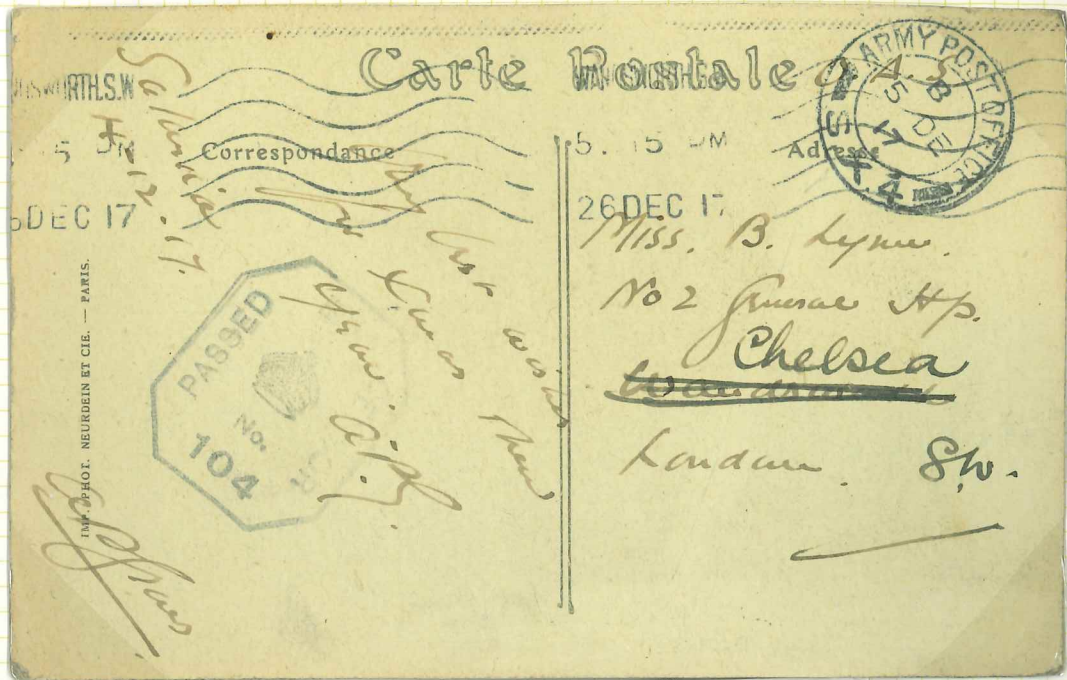 Carte Postale
O.A.S.
ARMY POST OFFICE
B
5 DE
17
S X.4
WANDSWORTH.S.W
5. 15 PM
26 DEC 17
NDSWORTH.S.W
5 PM
6 DEC 17
Correspondance
Adresse
Salonica
4.12.17.
My best wishes
for Xmas & New
Year. A.P.G.
PASSED
No.
104
IMP. PHOT. NEURDEIN ET CIE. — PARIS.
Miss. B. Lynn.
No 2 General Hp.
Chelsea
Wandsworth
London S.W.